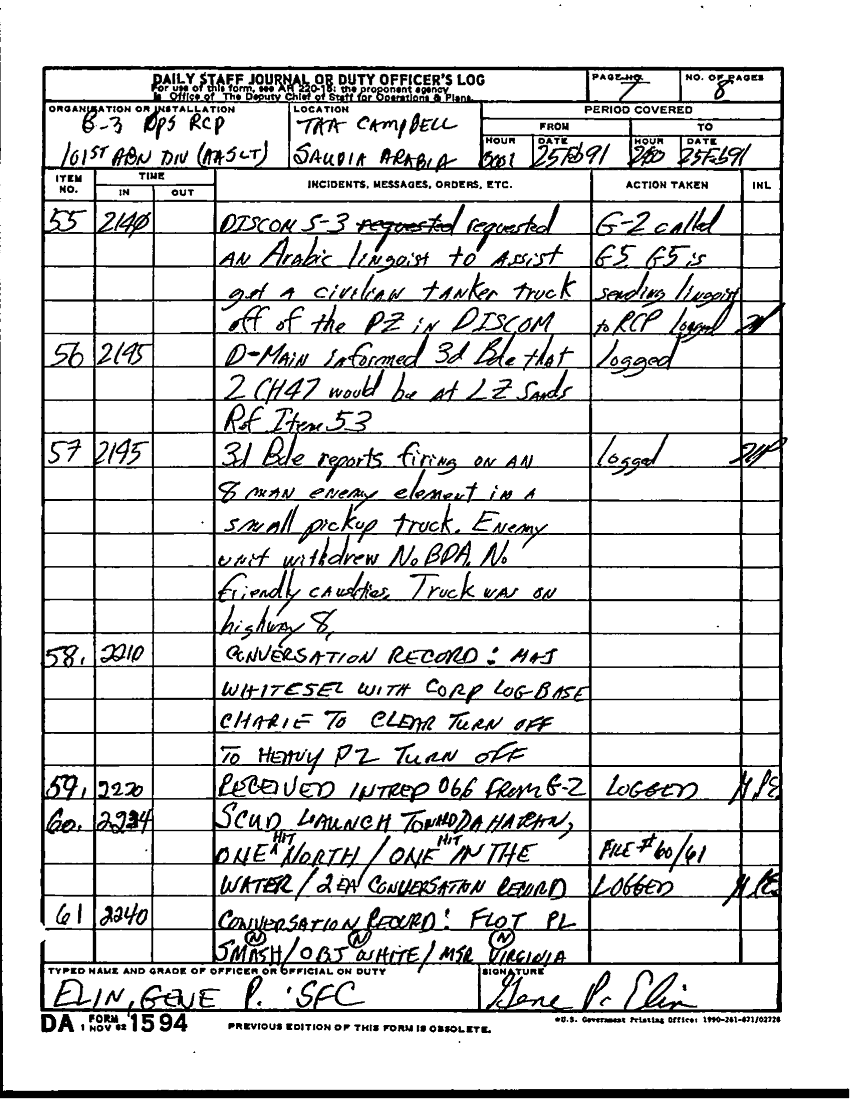 DAILY STAFF JOURNAL OR DUTY OFFICER'S LOG
For use of this form, see AR 220-15; the proponent agency
is Office of The Deputy Chief of Staff for Operations & Plans.
PAGE NO.
7
NO. OF PAGES
8
ORGANIZATION OR INSTALLATION
G-3 Ops RCP
101ST ABN DIV (AASLT)
LOCATION
TAA CAMPBELL
SAUDIA ARABIA
PERIOD COVERED
FROM
TO
HOUR
0001
DATE
25Feb91
HOUR
2400
DATE
25Feb91
ITEM NO.
TIME
IN
OUT
INCIDENTS, MESSAGES, ORDERS, ETC.
ACTION TAKEN
INL
55 2140 DISCOM S-3 requested requested G-2 called
AN Arabic linguist to Assist G5 G5 is
get a civilian tanker truck sending linguist
off of the PZ in DISCOM to RCP logged
56 2145 D-MAIN informed 3d Bde that logged
2 CH47 would be at LZ Sands
Ref Item 53
57 2145 3d Bde reports firing on an logged
8 man enemy element in a
small pickup truck. Enemy
unit withdrew No BDA. No
friendly causlties. Truck was on
highway 8.
58. 2210 CONVERSATION RECORD: MAJ
WHITESEL WITH CORP LOG-BASE
CHARIE TO CLEAR TURN OFF
TO HEAVY PZ TURN OFF
59. 2220 RECEIVED INTREP 066 FROM G-2 LOGGED
60. 2234 SCUD LAUNCH TOWARD DAHARAN,
ONE HIT NORTH / ONE HIT IN THE FILE #60/61
WATER / 2 EA CONVERSATION RECORD LOGGED
61 2240 CONVERSATION RECORD: FLOT PL
SMASH (N) / OBJ WHITE (N) / MSR VIRGINIA (N)
TYPED NAME AND GRADE OF OFFICER OR OFFICIAL ON DUTY
ELIN, GENE P. SFC
SIGNATURE
Gene P. Elin
DA FORM 1594
1 NOV 62
PREVIOUS EDITION OF THIS FORM IS OBSOLETE.
*U.S. Government Printing Office: 1990-261-871/02728